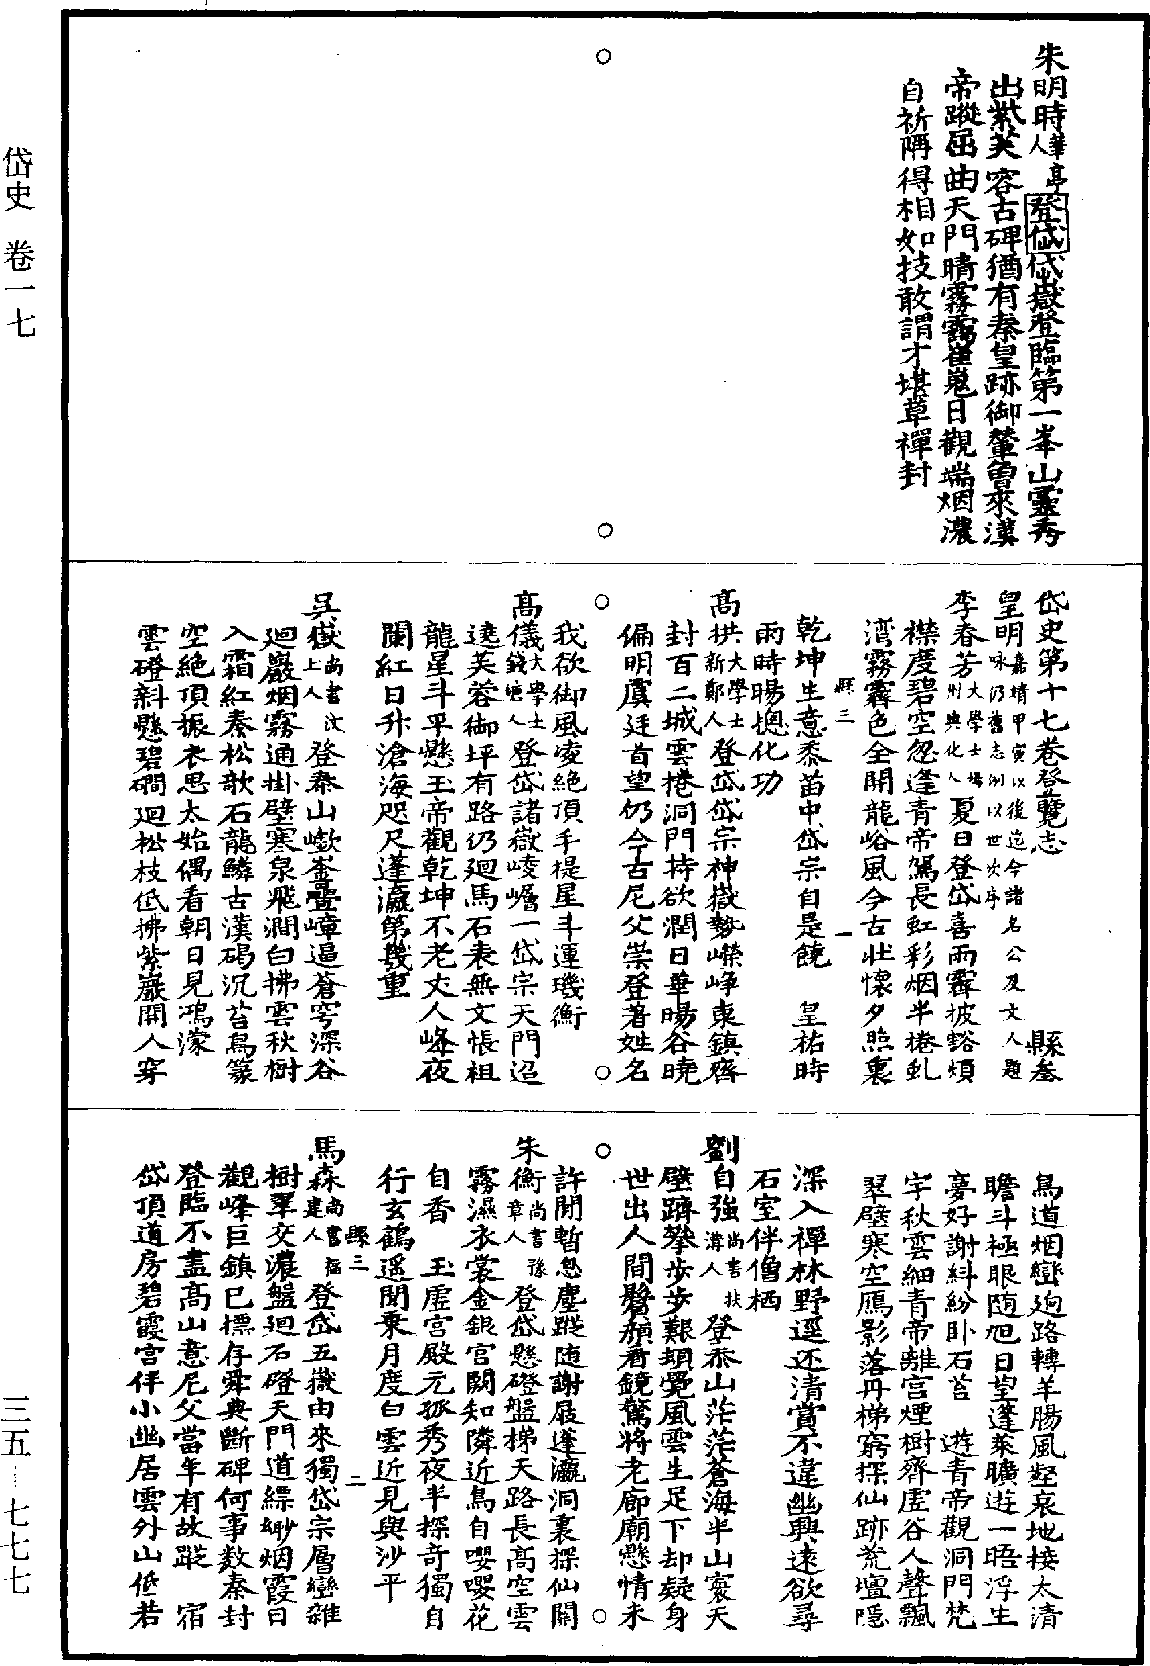 岱史 卷一七
三五—七七七
朱明時華亭人登岱岱嶽登臨第一峯山靈秀
出紫芙容古碑猶有秦皇跡御輦曾來漢
帝蹤屈曲天門晴霧靄崔嵬日觀端烟濃
自祈隋得相如技敢謂才堪草禪封
岱史第十七卷登覽志 縣叁
皇明嘉靖甲寅以後迄今諸名公及文人題咏仍舊志例以世次序
李春芳大學士揚州興化人夏日登岱喜雨霽披豁煩
襟度碧空忽逢青帝駕長虹彩烟半捲虬
湾霧霽色全開龍峪風今古壯懷夕照裏
縣三 一
乾坤生意黍苗中岱宗自是饒 皇祐時
雨時暘摠化功
高拱大學士新鄭人登岱岱宗神嶽勢嶸崢東鎮齊
封百二城雲捲洞門持欲潤日華暘谷曉
偏明虞廷首望仍今古尼父崇登著姓名
我欲御風凌絕頂手提星斗運璣衡
高儀大學士錢塘人登岱諸嶽崚嶒一岱宗天門迢
遶芙蓉御坪有路仍廻馬石表無文悵祖
龍星斗平懸玉帝觀乾坤不老丈人峰夜
闌紅日升滄海咫尺蓬瀛第幾重
吳嶽尚書汶上人登泰山嶔崟疊嶂逼蒼穹深谷
廻巖烟霧通掛壁寒泉飛澗白拂雲秋樹
入霜紅秦松欹石龍鱗古漢碣沉苔鳥篆
空絕頂振衣思太始偶看朝日見鴻濛
雲磴斜懸碧磵廻松枝低拂紫巖開人穿
鳥道烟巒迥路轉羊腸風壑哀地接太清
瞻斗極眼随旭日望蓬萊曠遊一晤浮生
夢好謝紛紛卧石苔 遊青帝觀洞門梵
宇秋雲細青帝離宮煙樹齊虛谷人聲飄
翠壁寒空鴈影落丹梯窮探仙跡荒壇隱
深入禪林野逕迷清賞不違幽興遠欲尋
石室伴僧栖
劉自強尚書扶溝人登泰山茫茫蒼海半山寰天
壁躋攀步步艱頓覺風雲生足下却疑身
世出人間鬢顏看鏡驚將老廊廟懸情未
許閒暫忽塵蹤随謝屐蓬瀛洞裏探仙關
朱衡尚書豫章人登岱懸磴盤梯天路長高空雲
霧濕衣裳金銀宮闕知隣近鳥自嚶嚶花
自香 玉虛宮殿元孤秀夜半探奇獨自
行玄鶴遥聞乗月度白雲近見與沙平
縣三 二
馬森尚書福建人登岱五嶽由來獨岱宗層巒雜
樹翠交濃盤廻石磴天門道縹緲烟霞日
觀峰巨鎮已標存舜典斷碑何事数秦封
登臨不盡高山意尼父當年有故蹤 宿
岱頂道房碧霞宮伴小幽居雲外山低若